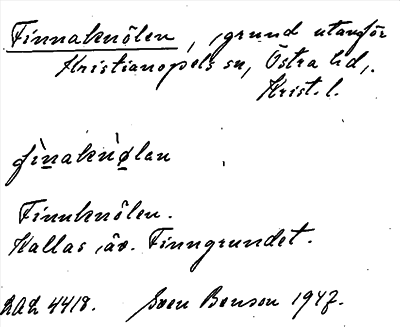 Finnaknölen, grund utanför
Kristianopels sn, Östra hd,
Krist. l.
fìnaknølan
Finnknölen.
Kallas äv. Finngrundet.
LAL 4418. Sven Benson 1947.